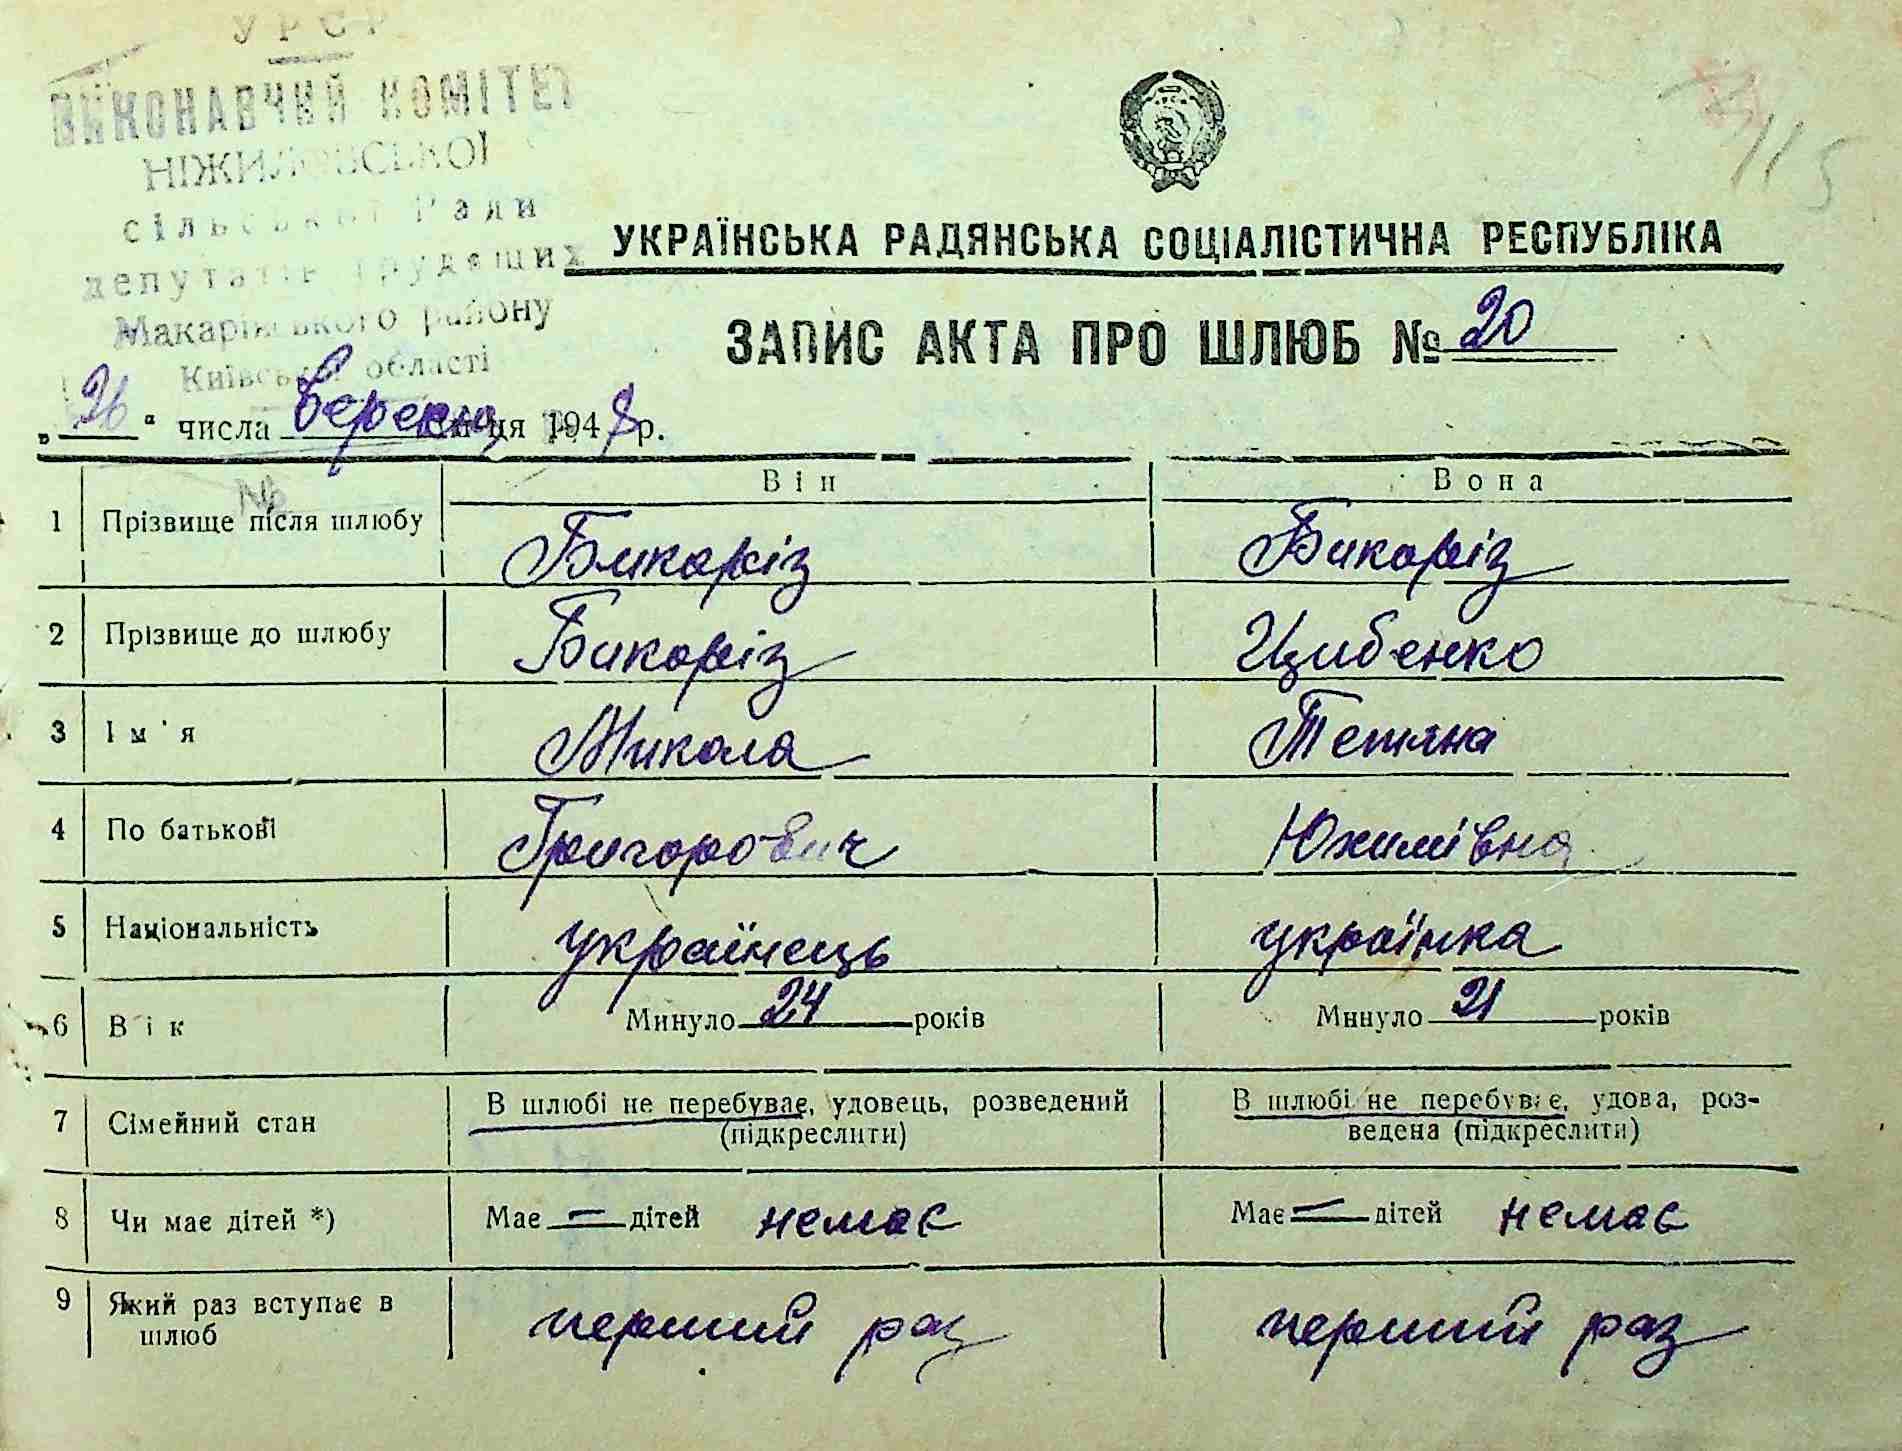 УРСР
ВИКОНАВЧИЙ КОМІТЕТ
НІЖИЛОВСЬКОЇ
сільської Ради
депутатів трудящих
Макарівського району
Київської області
115
УКРАЇНСЬКА РАДЯНСЬКА СОЦІАЛІСТИЧНА РЕСПУБЛІКА
ЗАПИС АКТА ПРО ШЛЮБ № 20
„26“ числа вересня місяця 1948 р.
№
Він Вона
1 Прізвище після шлюбу Бикоріз Бикоріз
2 Прізвище до шлюбу Бикоріз Цибенко
3 Ім'я Микола Тетяна
4 По батькові Григорович Юхимівна
5 Національність українець українка
6 Вік Минуло 24 років Минуло 21 років
7 Сімейний стан В шлюбі не перебуває, удовець, розведений (підкреслити) В шлюбі не перебуває, удова, роз-
ведена (підкреслити)
8 Чи має дітей *) Має — дітей немає Має — дітей немає
9 Який раз вступає в шлюб перший раз перший раз